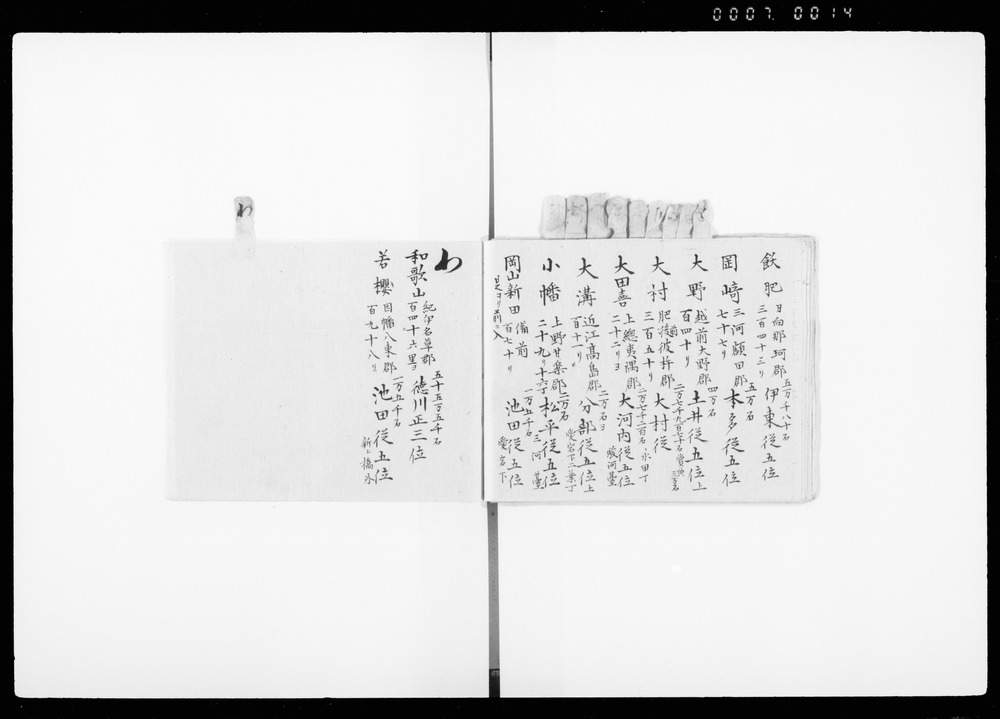 0007 0014
飫肥
日向那珂郡
三百四十三リ
五万千八十石
伊東従五位
岡崎
三河額田郡
七十七リ
五万石
本多従五位
大野
越前大野郡
百四十リ
四万石
土井従五位
上
大村
肥後彼杵郡
前
三百五十リ
二万七千九百七十石
大村従
大田喜
上總夷隅郡
二十二リヨ
二万七千二百石
大河内従五位
駿河臺
大溝
近江高島郡
百十一リ
二万石ヨ
分部従五位上
愛宕下二葉丁
小幡
上野甘楽郡
二十九リ十六丁
二万石
松平従五位
三河臺
岡山新田
備前
百七十リ
一万五千石
池田従五位
愛宕下
是ヨリ前ニ入
わ
和歌山
紀伊名草郡
百四十六里
五十五万五千石
徳川正三位
若櫻
因幡八東郡
百九十八リ
一万五千石
池田従五位
新シ橋外
わ